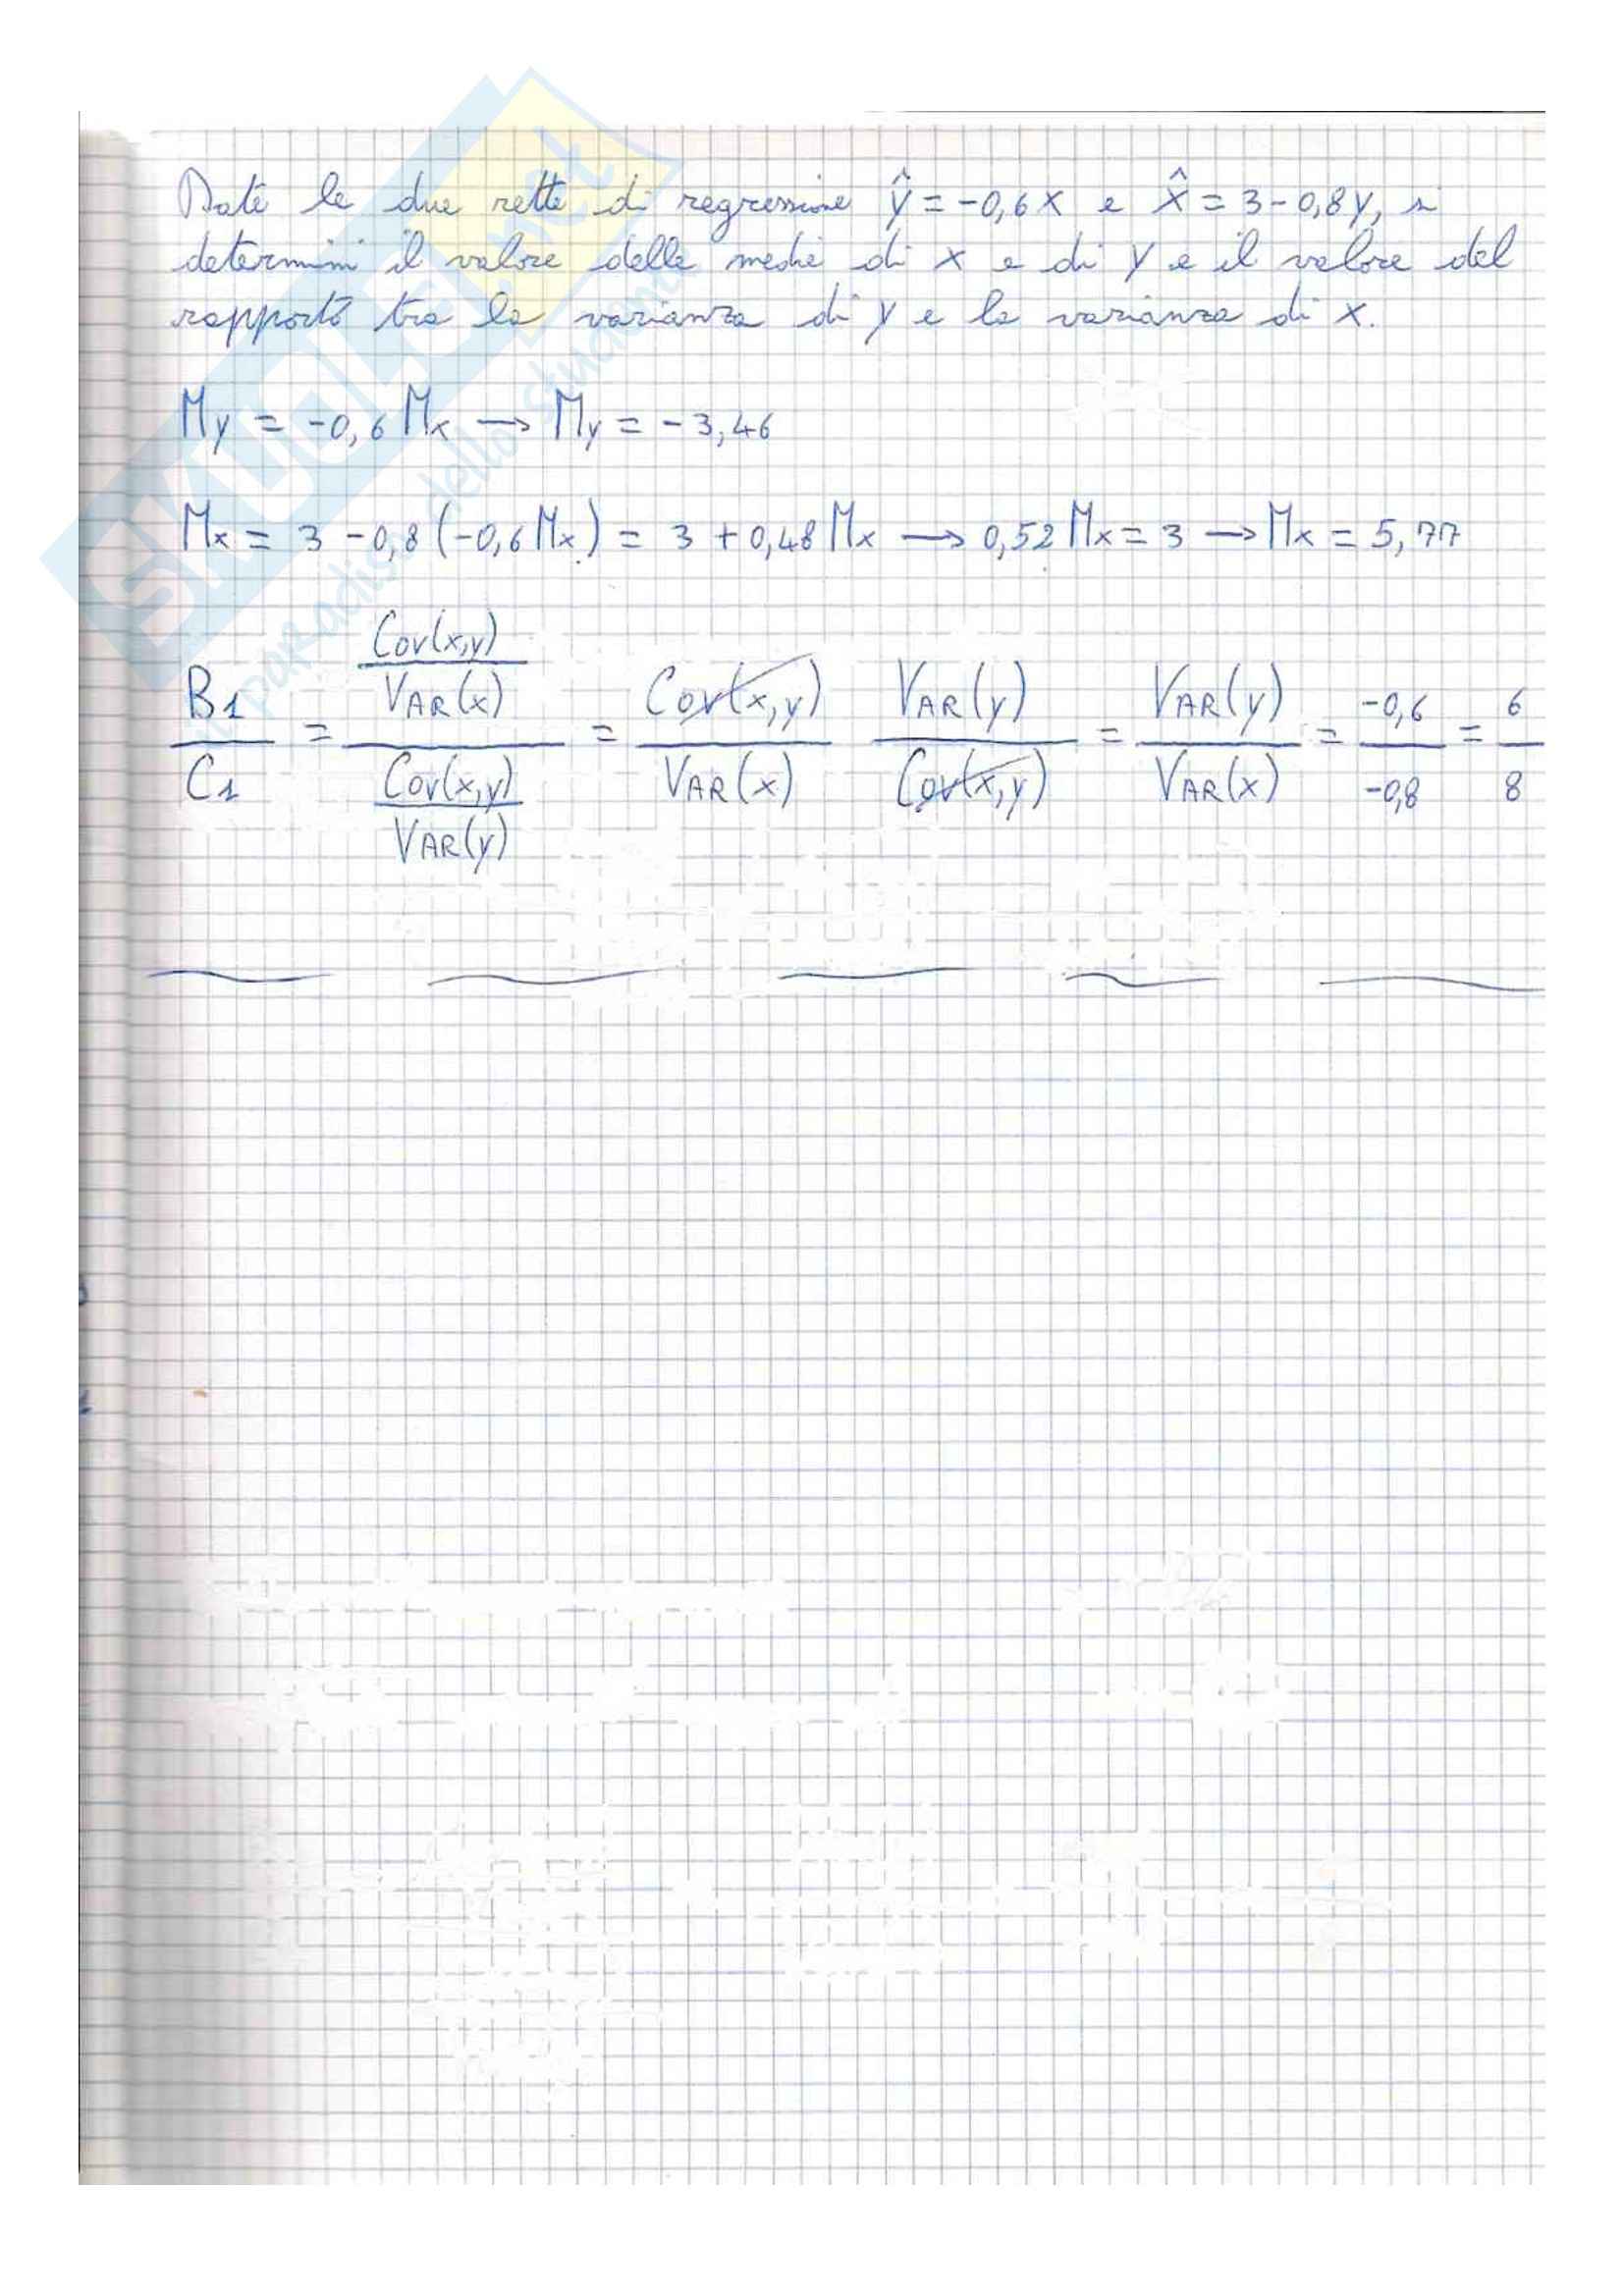 Date le due rette di regressione ŷ = -0,6x e x̂ = 3 - 0,8y, si
determini il valore delle medie di x e di y e il valore del
rapporto tra la varianza di y e la varianza di x.
My = -0,6 Mx → My = -3,46
Mx = 3 - 0,8 (-0,6 Mx) = 3 + 0,48 Mx → 0,52 Mx = 3 → Mx = 5,77
B1/C1 = (Cov(x,y)/VAR(x))/(Cov(x,y)/VAR(y)) = Cov(x,y)/VAR(x) VAR(y)/Cov(x,y) = VAR(y)/VAR(x) = -0,6/-0,8 = 6/8
SKUOLA.net
il paradiso dello studente